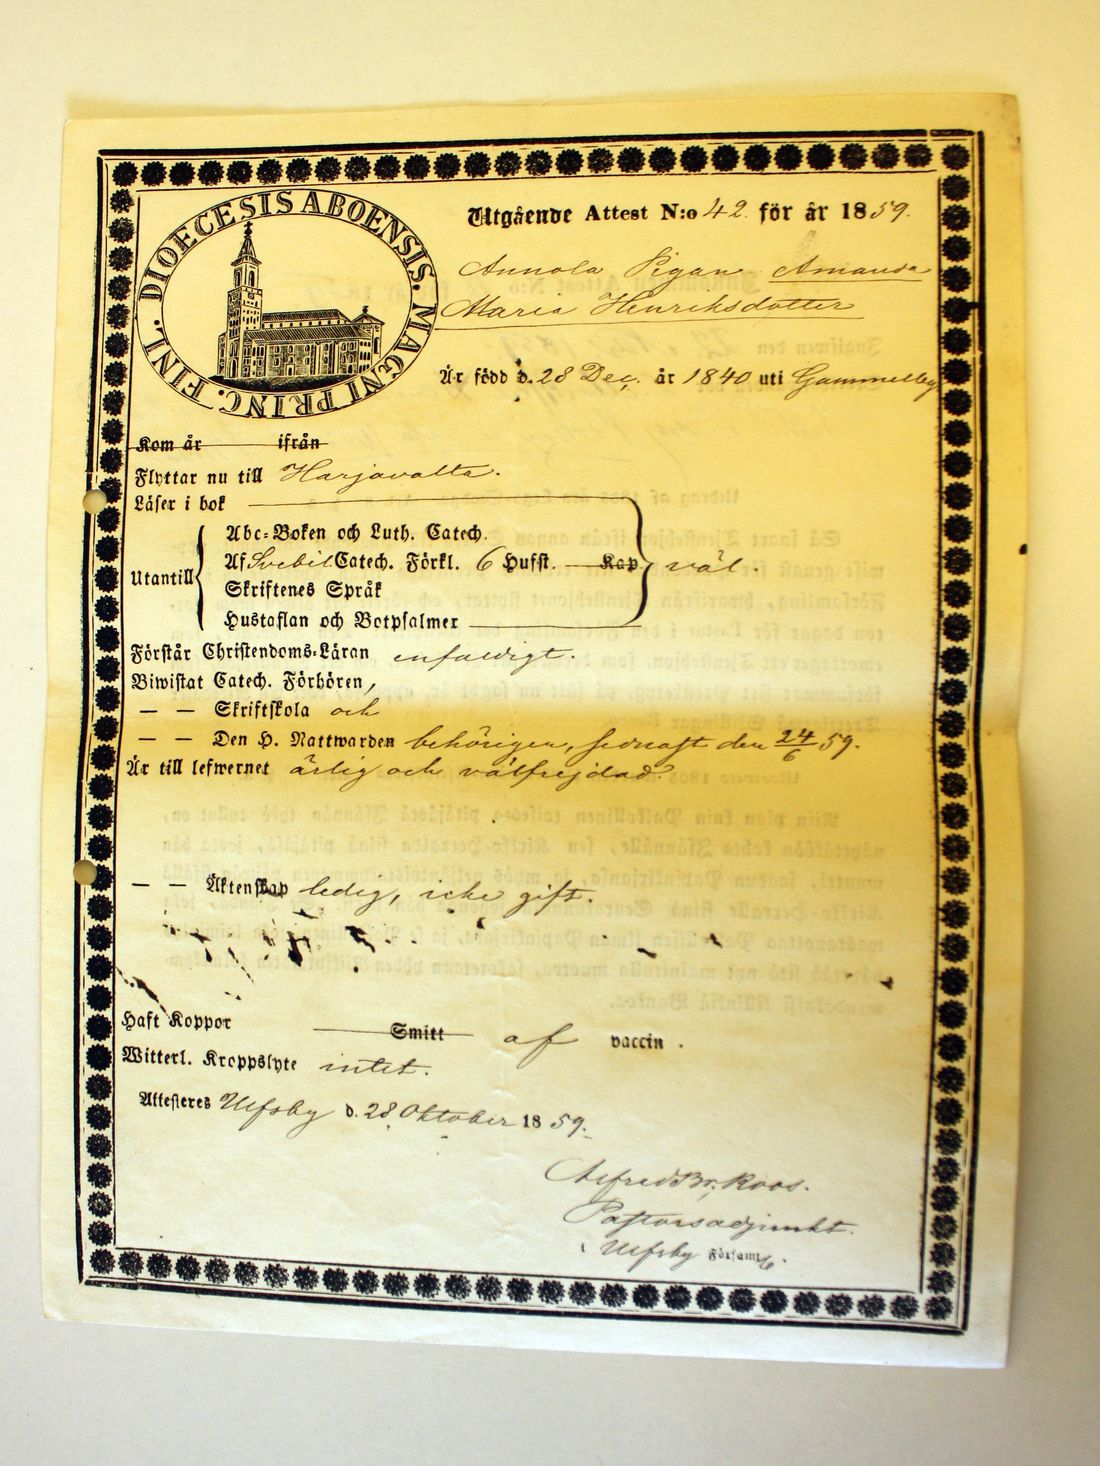 DIOECESIS ABOENSIS. MAGNI PRINC. FINL.
Utgående Attest N:o 42. för år 1859.
Annola Pigan Amanda
Maria Henriksdotter
Är född d. 28 Dec. år 1840 uti Gammelby
Kom år ifrån
Flyttar nu till Harjavalta.
Läser i bok
Abc-Boken och Luth. Catech.
Utantill Af Svebil Catech. Förkl. 6 Hufst. Kap. väl.
Skriftenes Språk
Hustaflan och Botpsalmer
Förstår Christendoms-Läran enfaldigt.
Biwistat Catech. Förhören,
— — Skriftskola och
— — Den H. Nattwarden behörigen, sednast den 24/6 59.
Är till lefwernet ärlig och välfrejdad.
— — Äktenskap ledig, icke gift.
Haft Koppor Smitt af vaccin.
Witterl. Kroppslyte intet.
Attesteres Ulfsby d. 28 Oktober 1859.
Alfred Br. Roos.
Pastorsadjunkt.
i Ulfsby Församl.